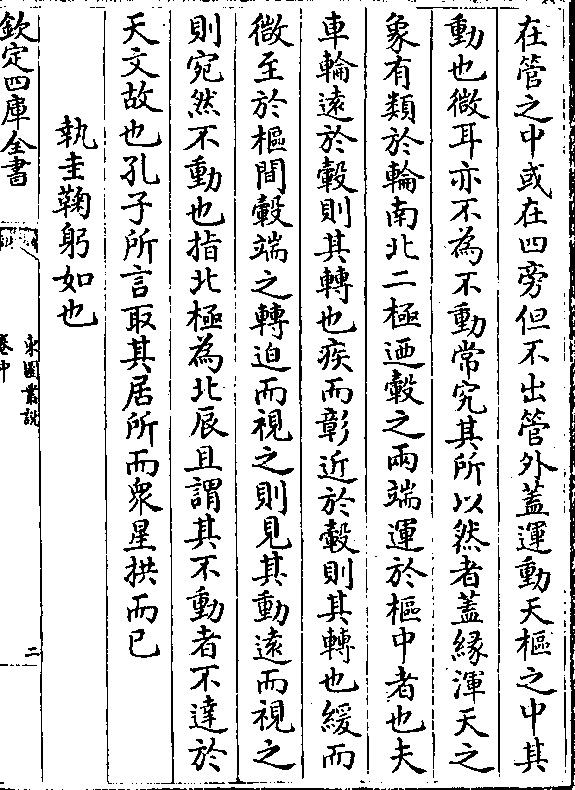 在管之中或在四旁但不出管外蓋運動天樞之中其
動也微耳亦不為不動常究其所以然者蓋緣渾天之
象有類於輪南北二極迺轂之兩端運於樞中者也夫
車輪遠於轂則其轉也疾而彰近於轂則其轉也緩而
微至於樞間轂端之轉迫而視之則見其動遠而視之
則宛然不動也指北極為北辰且謂其不動者不達於
天文故也孔子所言取其居所而衆星拱而已
執圭鞠躬如也
欽定四庫全書
東園叢說
卷中
二